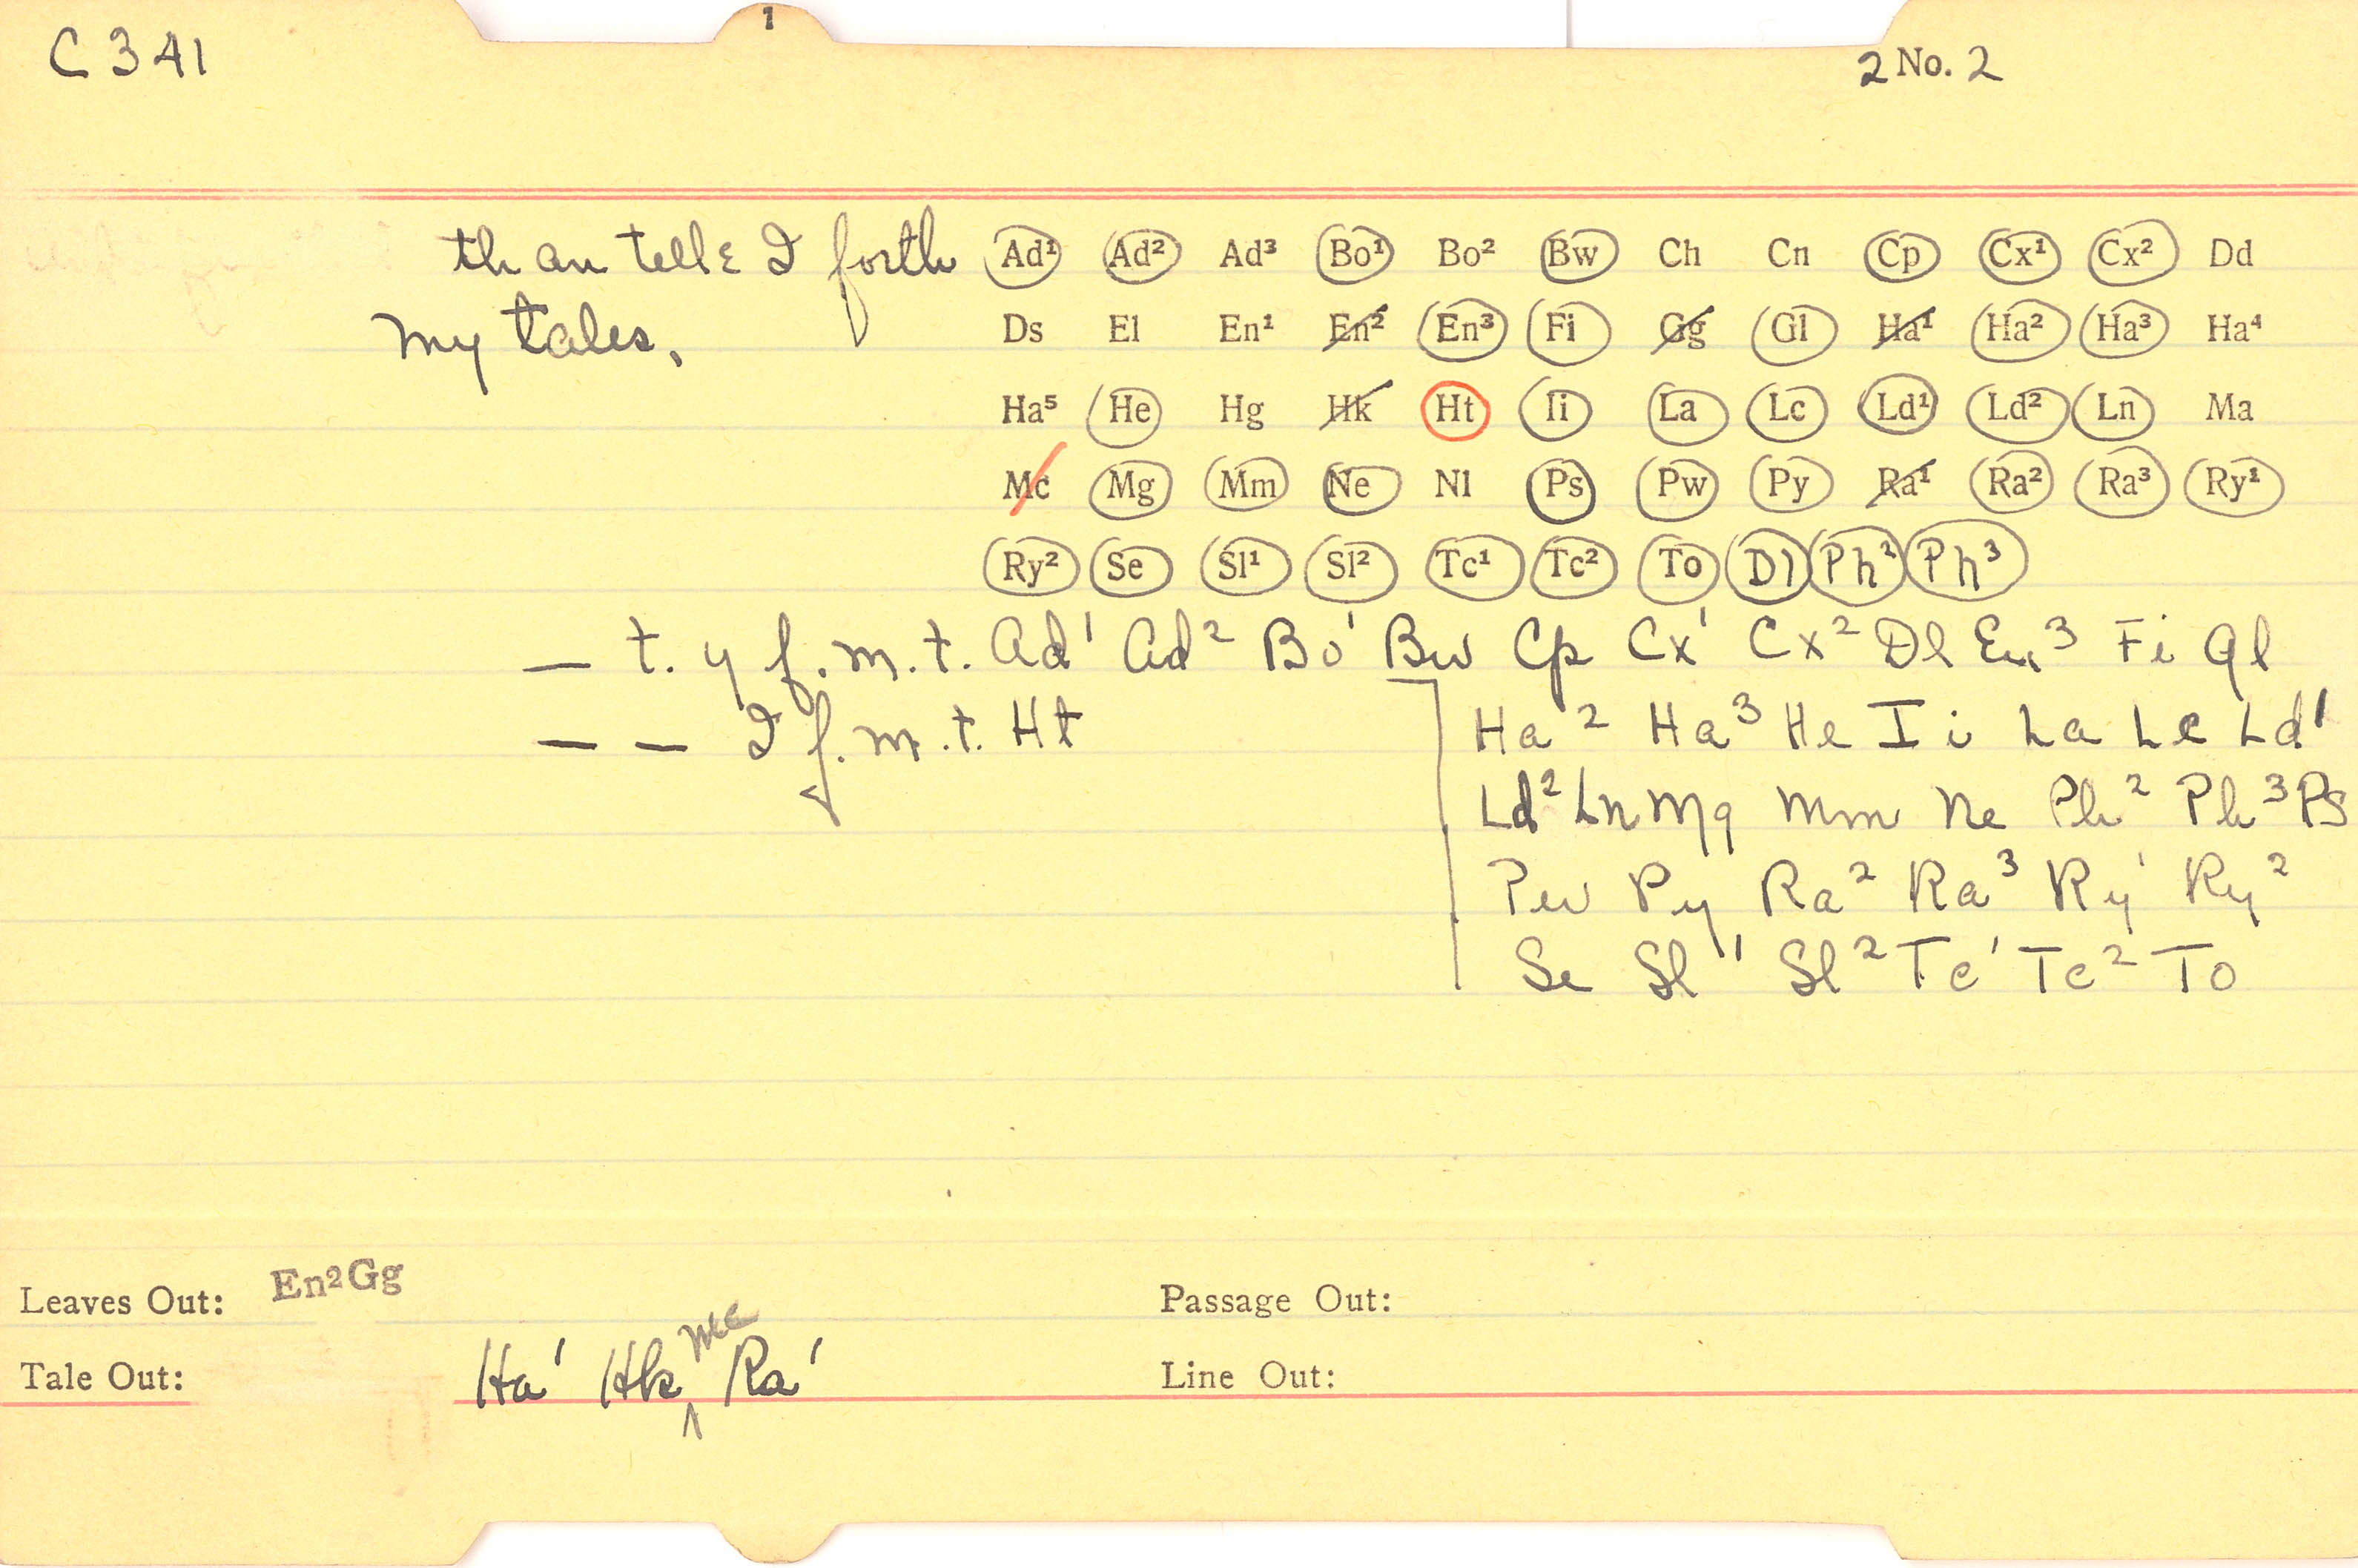 1
C 341
2 No. 2
than telle I forth Ad¹ Ad² Ad³ Bo¹ Bo² Bw Ch Cn Cp Cx¹ Cx² Dd
my tales. Ds El En¹ En² En³ Fi Gg Gl Ha¹ Ha² Ha³ Ha⁴
Ha⁵ He Hg Hk Ht Ii La Lc Ld¹ Ld² Ln Ma
Mc Mg Mm Ne Nl Ps Pw Py Ra¹ Ra² Ra³ Ry¹
Ry² Se Sl¹ Sl² Tc¹ Tc² To Dl Ph² Ph³
— t. y f. m. t. Ad¹ Ad² Bo¹ Bw Cp Cx¹ Cx² Dl En³ Fi Gl
— — I f. m. t. Ht Ha² Ha³ He Ii La Lc Ld¹
Ld² Ln Mg Mm Ne Ph² Ph³ Ps
Pw Py Ra² Ra³ Ry¹ Ry²
Se Sl¹ Sl² Tc¹ Tc² To
Leaves Out: En²Gg
Passage Out:
Tale Out: Ha¹ Hk Mc Ra¹
Line Out: